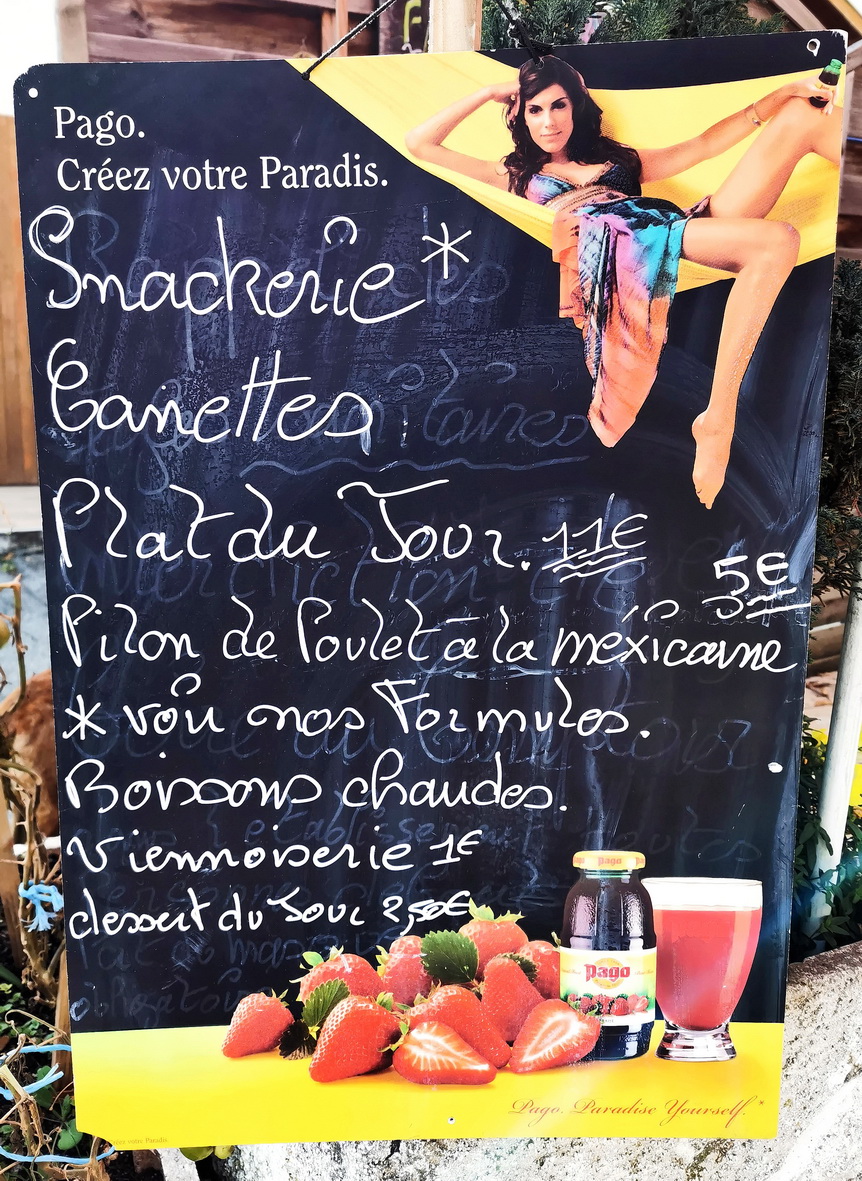 Pago.
Créez votre Paradis.
Snackerie*
Canettes
Plat du Jour. 11€
5€
Pilon de Poulet à la méxicaine
* voir nos Formules.
Boissons chaudes.
Viennoiserie 1€
dessert du Jour 2,50€
Pago
Pago
Pago. Paradise Yourself.*